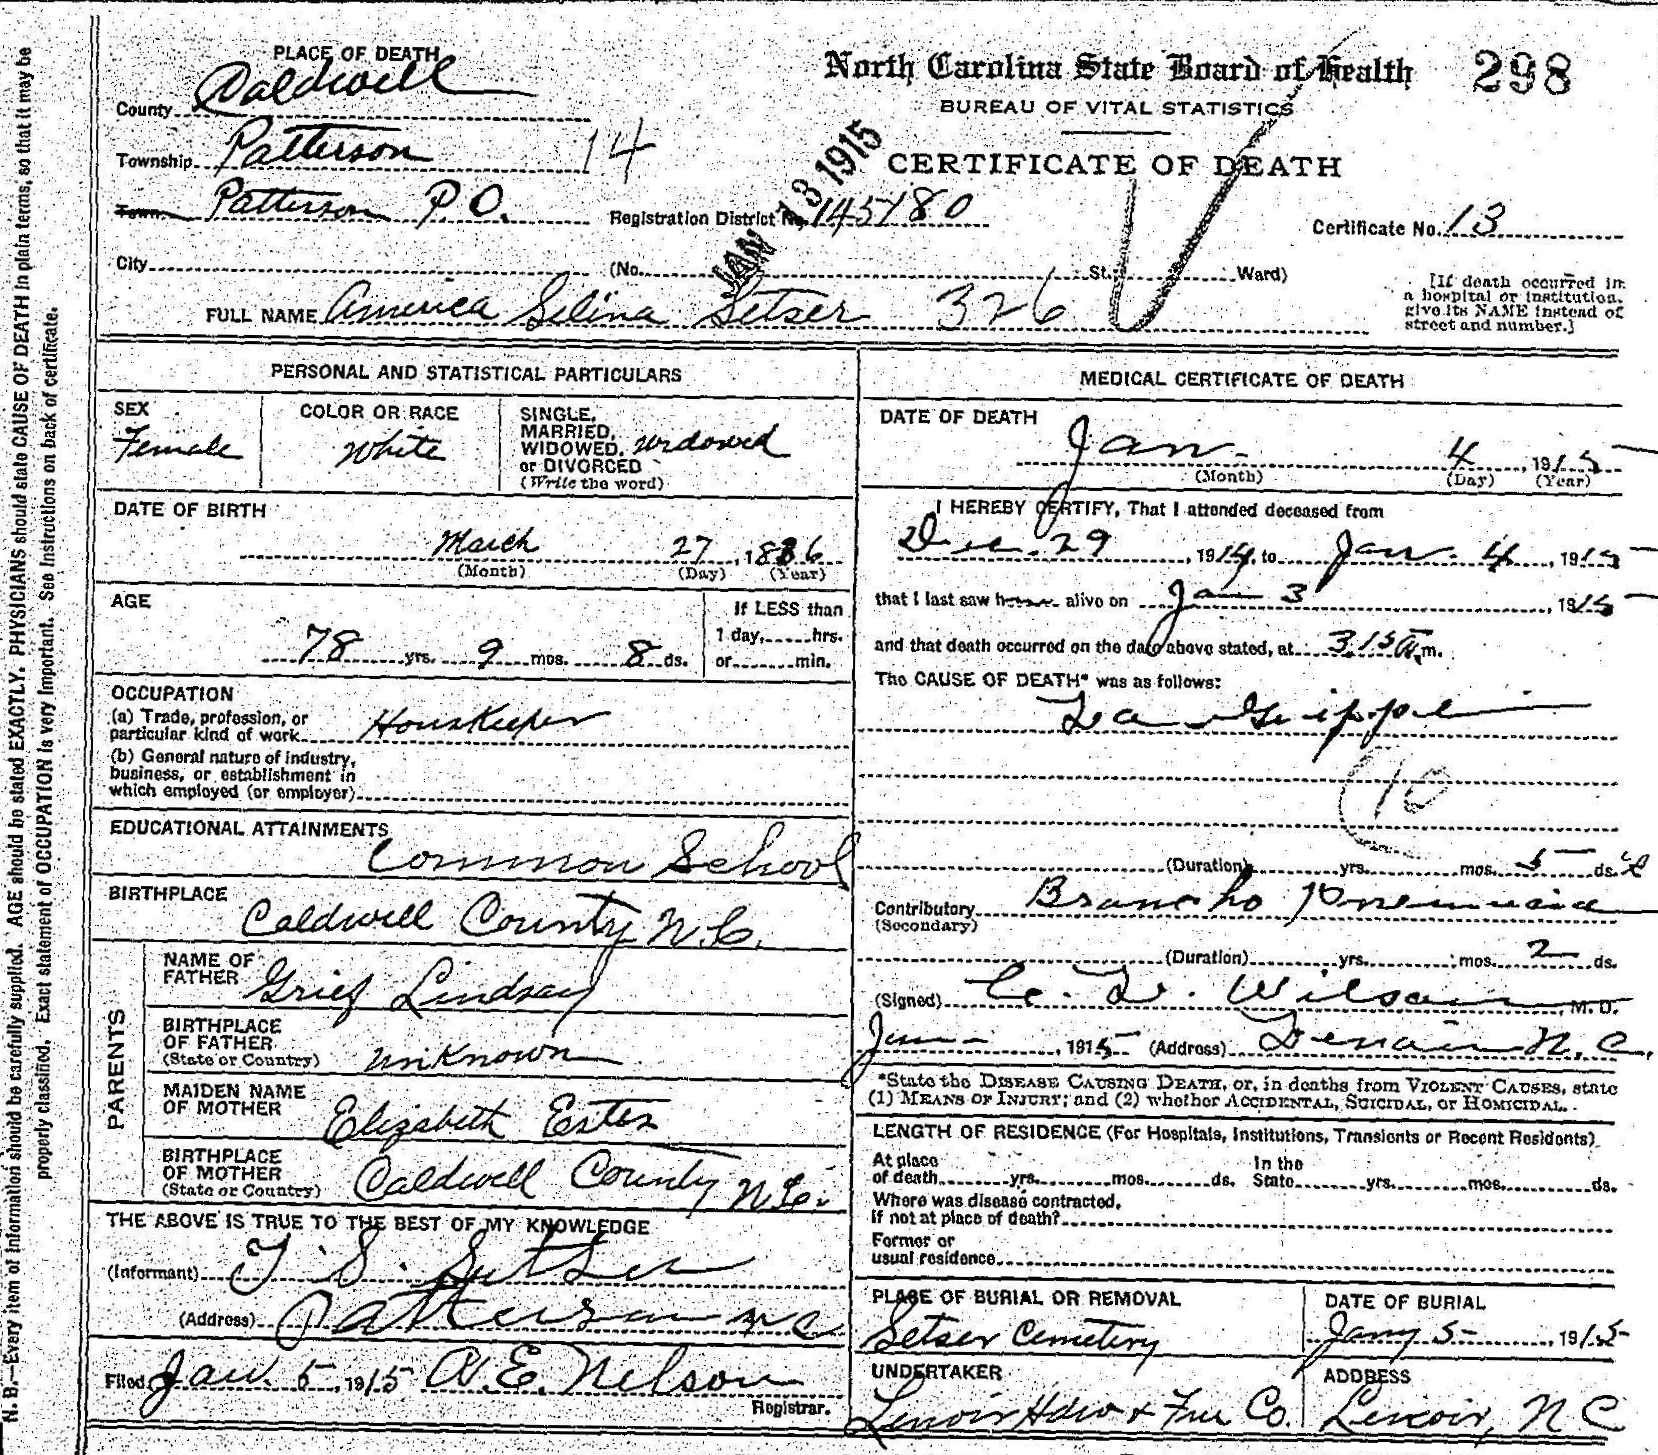 PLACE OF DEATH
County Caldwell
Township Patterson 14
Town Patterson P.O.
City
North Carolina State Board of Health 298
BUREAU OF VITAL STATISTICS
CERTIFICATE OF DEATH
JAN 13 1915
Registration District No. 145180
Certificate No. 13
(No. St. Ward)
[If death occurred in
a hospital or institution,
give its NAME instead of
street and number.]
FULL NAME America Selina Setser 326
PERSONAL AND STATISTICAL PARTICULARS
SEX
Female
COLOR OR RACE
White
SINGLE,
MARRIED,
WIDOWED,
or DIVORCED
(Write the word)
widowed
DATE OF BIRTH
March 27, 1836
(Month) (Day) (Year)
AGE
78 yrs. 9 mos. 8 ds.
If LESS than
1 day, hrs.
or min.
OCCUPATION
(a) Trade, profession, or
particular kind of work Houskeeper
(b) General nature of industry,
business, or establishment in
which employed (or employer)
EDUCATIONAL ATTAINMENTS
Common School
BIRTHPLACE
Caldwell County N.C.
PARENTS
NAME OF
FATHER Grief Lindsay
BIRTHPLACE
OF FATHER
(State or Country) unKnown
MAIDEN NAME
OF MOTHER Elizabeth Estes
BIRTHPLACE
OF MOTHER
(State or Country) Caldwell County N.C.
THE ABOVE IS TRUE TO THE BEST OF MY KNOWLEDGE
(Informant) T. S. Setser
(Address) Patterson NC
Filed Jan. 5, 1915 E. Nelson
Registrar.
MEDICAL CERTIFICATE OF DEATH
DATE OF DEATH
Jan. 4, 1915
(Month) (Day) (Year)
I HEREBY CERTIFY, That I attended deceased from
Dec. 29, 1914, to Jan. 4, 1915
that I last saw her alive on Jan 3, 1915
and that death occurred on the date above stated, at 3.15 A.m.
The CAUSE OF DEATH* was as follows:
La Grippe
10
(Duration) yrs. mos. 5 ds.
Contributory Broncho Pneumonia
(Secondary)
(Duration) yrs. mos. 2 ds.
(Signed) Wilson, M. D.
, 1915 (Address) Lenoir N.C.
*State the DISEASE CAUSING DEATH, or, in deaths from VIOLENT CAUSES, state
(1) MEANS OF INJURY; and (2) whether ACCIDENTAL, SUICIDAL, or HOMICIDAL.
LENGTH OF RESIDENCE (For Hospitals, Institutions, Transients or Recent Residents)
At place
of death yrs. mos. ds.
In the
State yrs. mos. ds.
Where was disease contracted,
if not at place of death?
Former or
usual residence
PLACE OF BURIAL OR REMOVAL
Setser Cemetery
DATE OF BURIAL
Jany 5, 1915
UNDERTAKER
Lenoir Hdw & Fur Co.
ADDRESS
Lenoir, N C
N. B.—Every item of information should be carefully supplied. AGE should be stated EXACTLY. PHYSICIANS should state CAUSE OF DEATH in plain terms, so that it may be
properly classified. Exact statement of OCCUPATION is very important. See instructions on back of certificate.